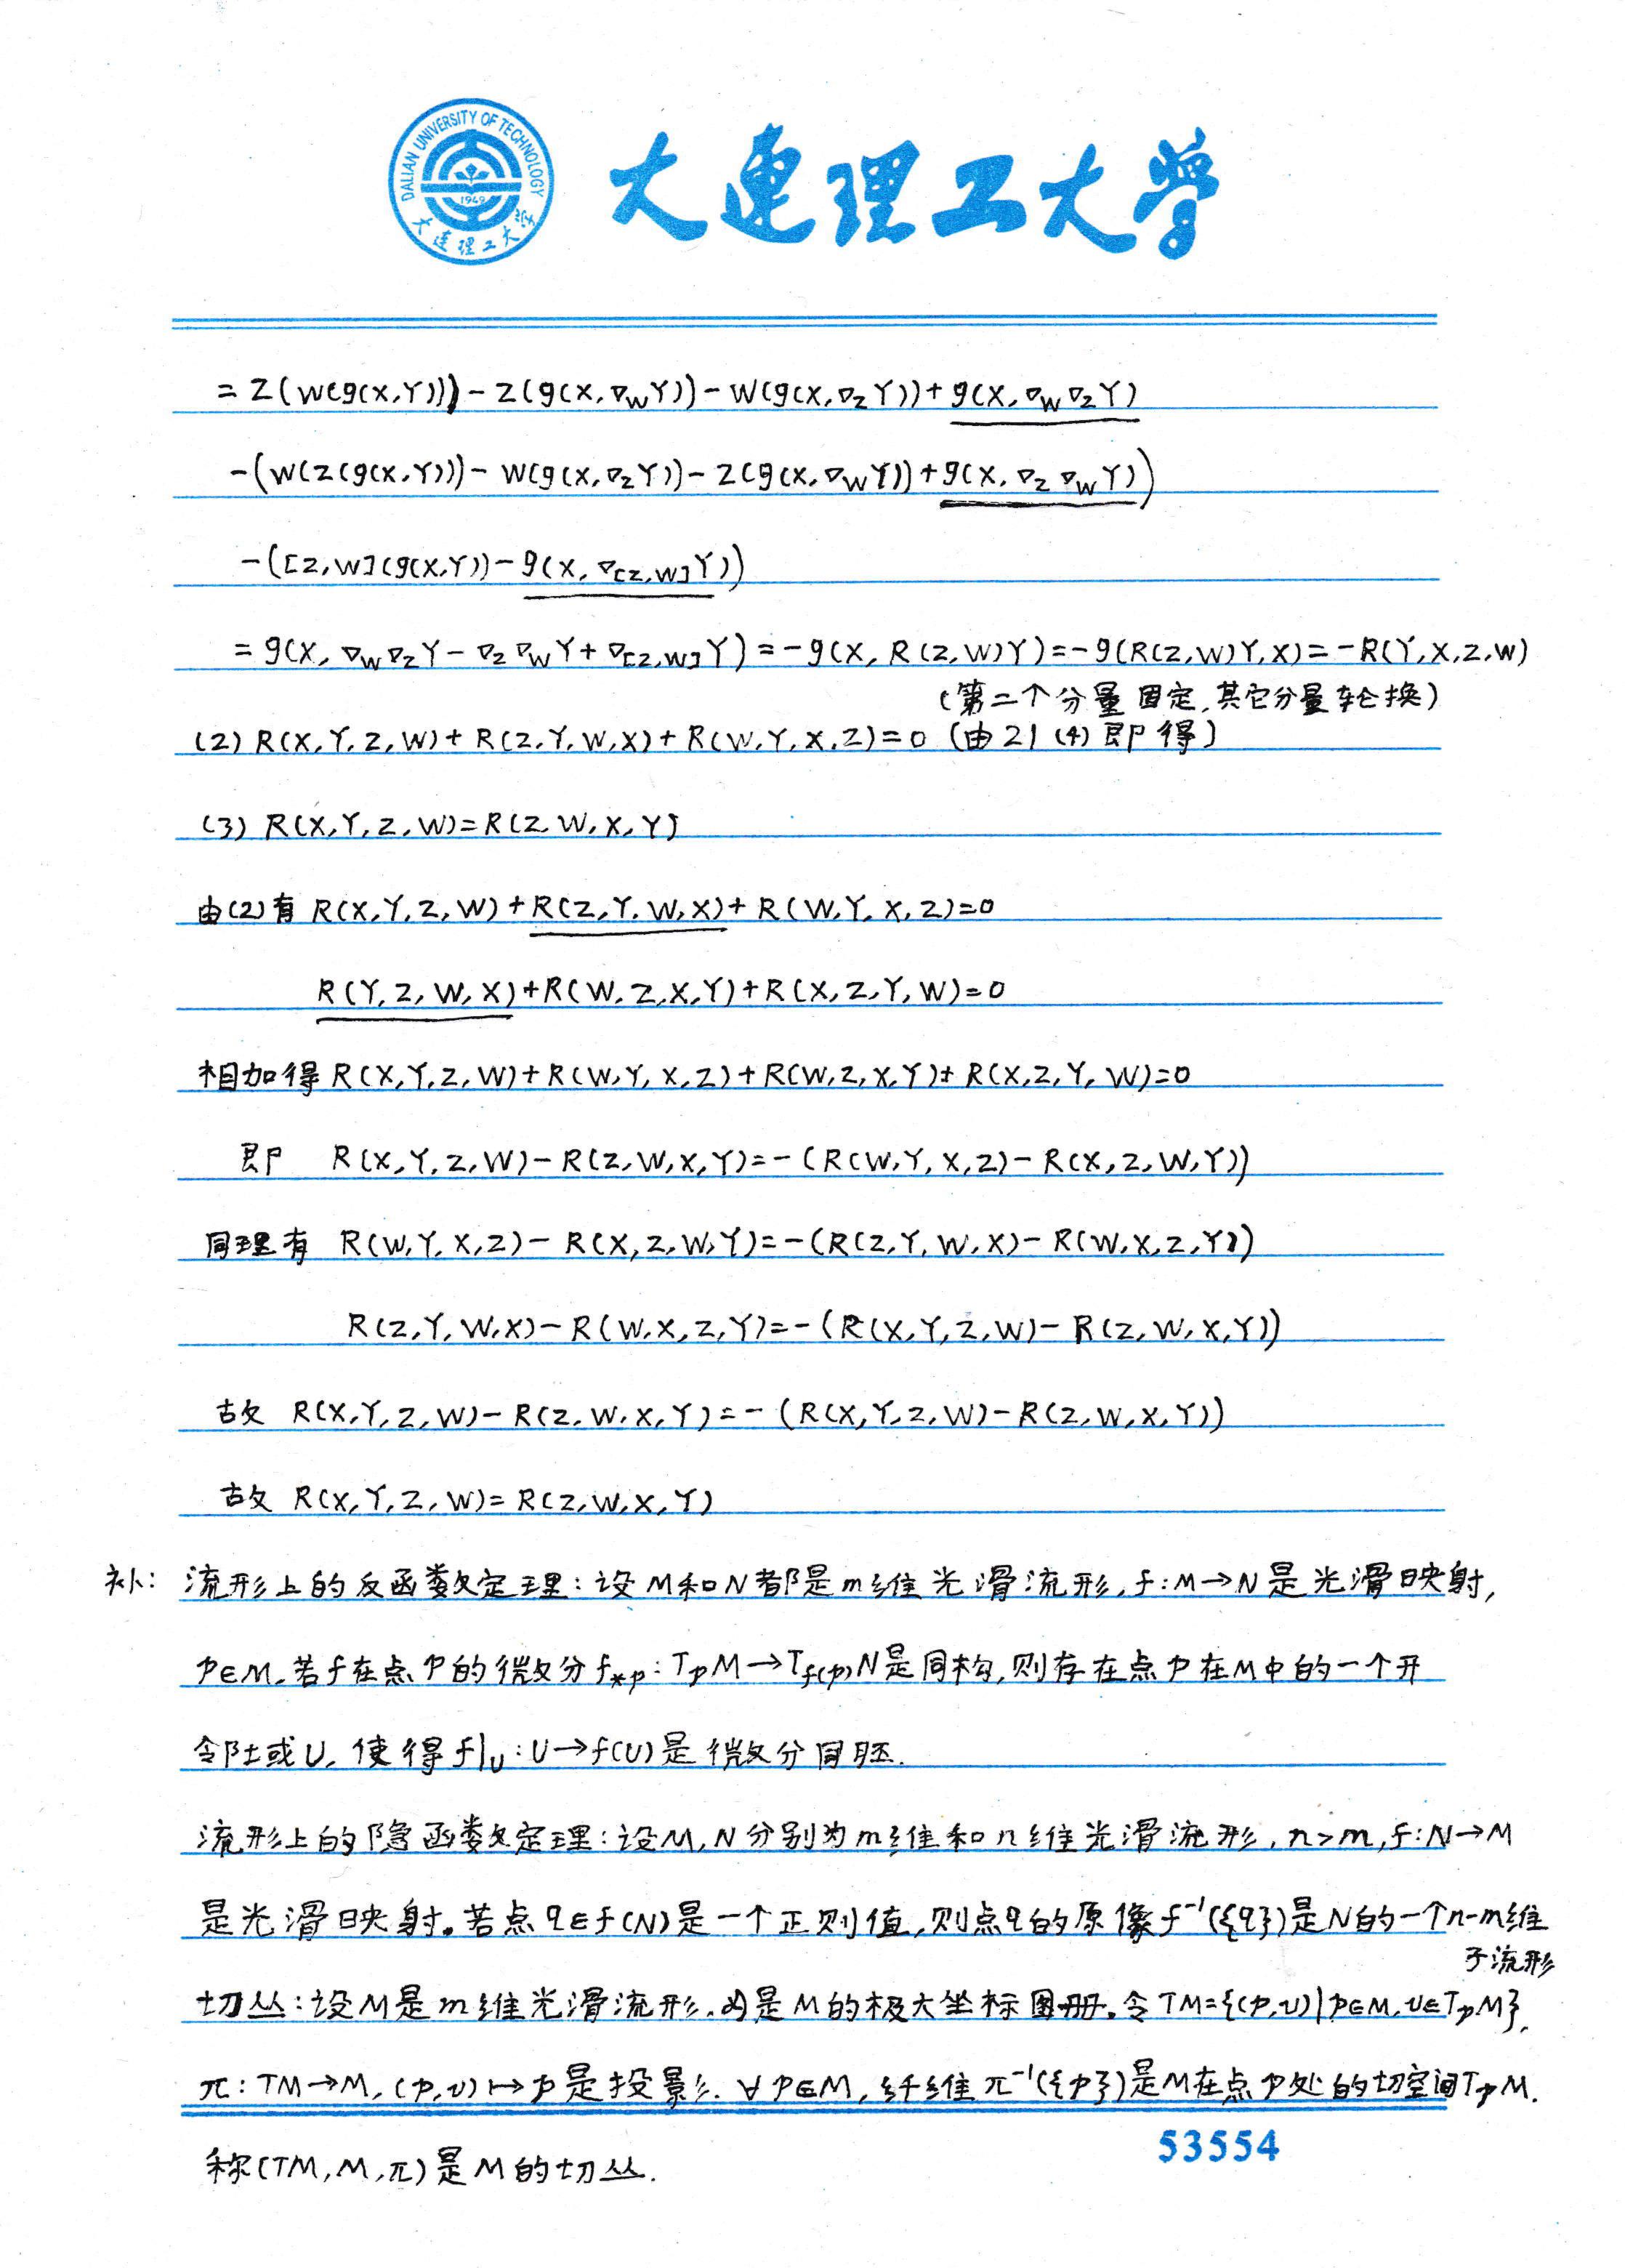 DALIAN UNIVERSITY OF TECHNOLOGY
1949
大连理工大学
大连理工大学
= Z(W(g(X,Y))) - Z(g(X,∇_W Y)) - W(g(X,∇_Z Y)) + g(X,∇_W ∇_Z Y)
-(W(Z(g(X,Y))) - W(g(X,∇_Z Y)) - Z(g(X,∇_W Y)) + g(X,∇_Z ∇_W Y))
-([Z,W](g(X,Y)) - g(X,∇_[Z,W] Y))
= g(X, ∇_W ∇_Z Y - ∇_Z ∇_W Y + ∇_[Z,W] Y) = -g(X, R(Z,W)Y) = -g(R(Z,W)Y,X) = -R(Y,X,Z,W)
(第二个分量固定,其它分量轮换)
(2) R(X,Y,Z,W)+R(Z,Y,W,X)+R(W,Y,X,Z)=0 (由21(4)即得)
(3) R(X,Y,Z,W)=R(Z,W,X,Y)
由(2)有 R(X,Y,Z,W)+R(Z,Y,W,X)+R(W,Y,X,Z)=0
R(Y,Z,W,X)+R(W,Z,X,Y)+R(X,Z,Y,W)=0
相加得 R(X,Y,Z,W)+R(W,Y,X,Z)+R(W,Z,X,Y)+R(X,Z,Y,W)=0
即 R(X,Y,Z,W)-R(Z,W,X,Y)=-(R(W,Y,X,Z)-R(X,Z,W,Y))
同理有 R(W,Y,X,Z)-R(X,Z,W,Y)=-(R(Z,Y,W,X)-R(W,X,Z,Y))
R(Z,Y,W,X)-R(W,X,Z,Y)=-(R(X,Y,Z,W)-R(Z,W,X,Y))
故 R(X,Y,Z,W)-R(Z,W,X,Y)=-(R(X,Y,Z,W)-R(Z,W,X,Y))
故 R(X,Y,Z,W)=R(Z,W,X,Y)
补: 流形上的反函数定理:设M和N都是m维光滑流形,f:M→N是光滑映射,
p∈M.若f在点p的微分f_*p:T_pM→T_f(p)N是同构,则存在点p在M中的一个开
邻域U,使得f|_U:U→f(U)是微分同胚.
流形上的隐函数定理:设M,N分别为m维和n维光滑流形,n>m,f:N→M
是光滑映射。若点q∈f(N)是一个正则值,则点q的原像f⁻¹({q})是N的一个n-m维
子流形
切丛:设M是m维光滑流形,𝒜是M的极大坐标图册。令TM={(p,v)|p∈M,v∈T_pM},
π:TM→M,(p,v)↦p是投影.∀p∈M,纤维π⁻¹({p})是M在点p处的切空间T_pM.
53554
称(TM,M,π)是M的切丛.